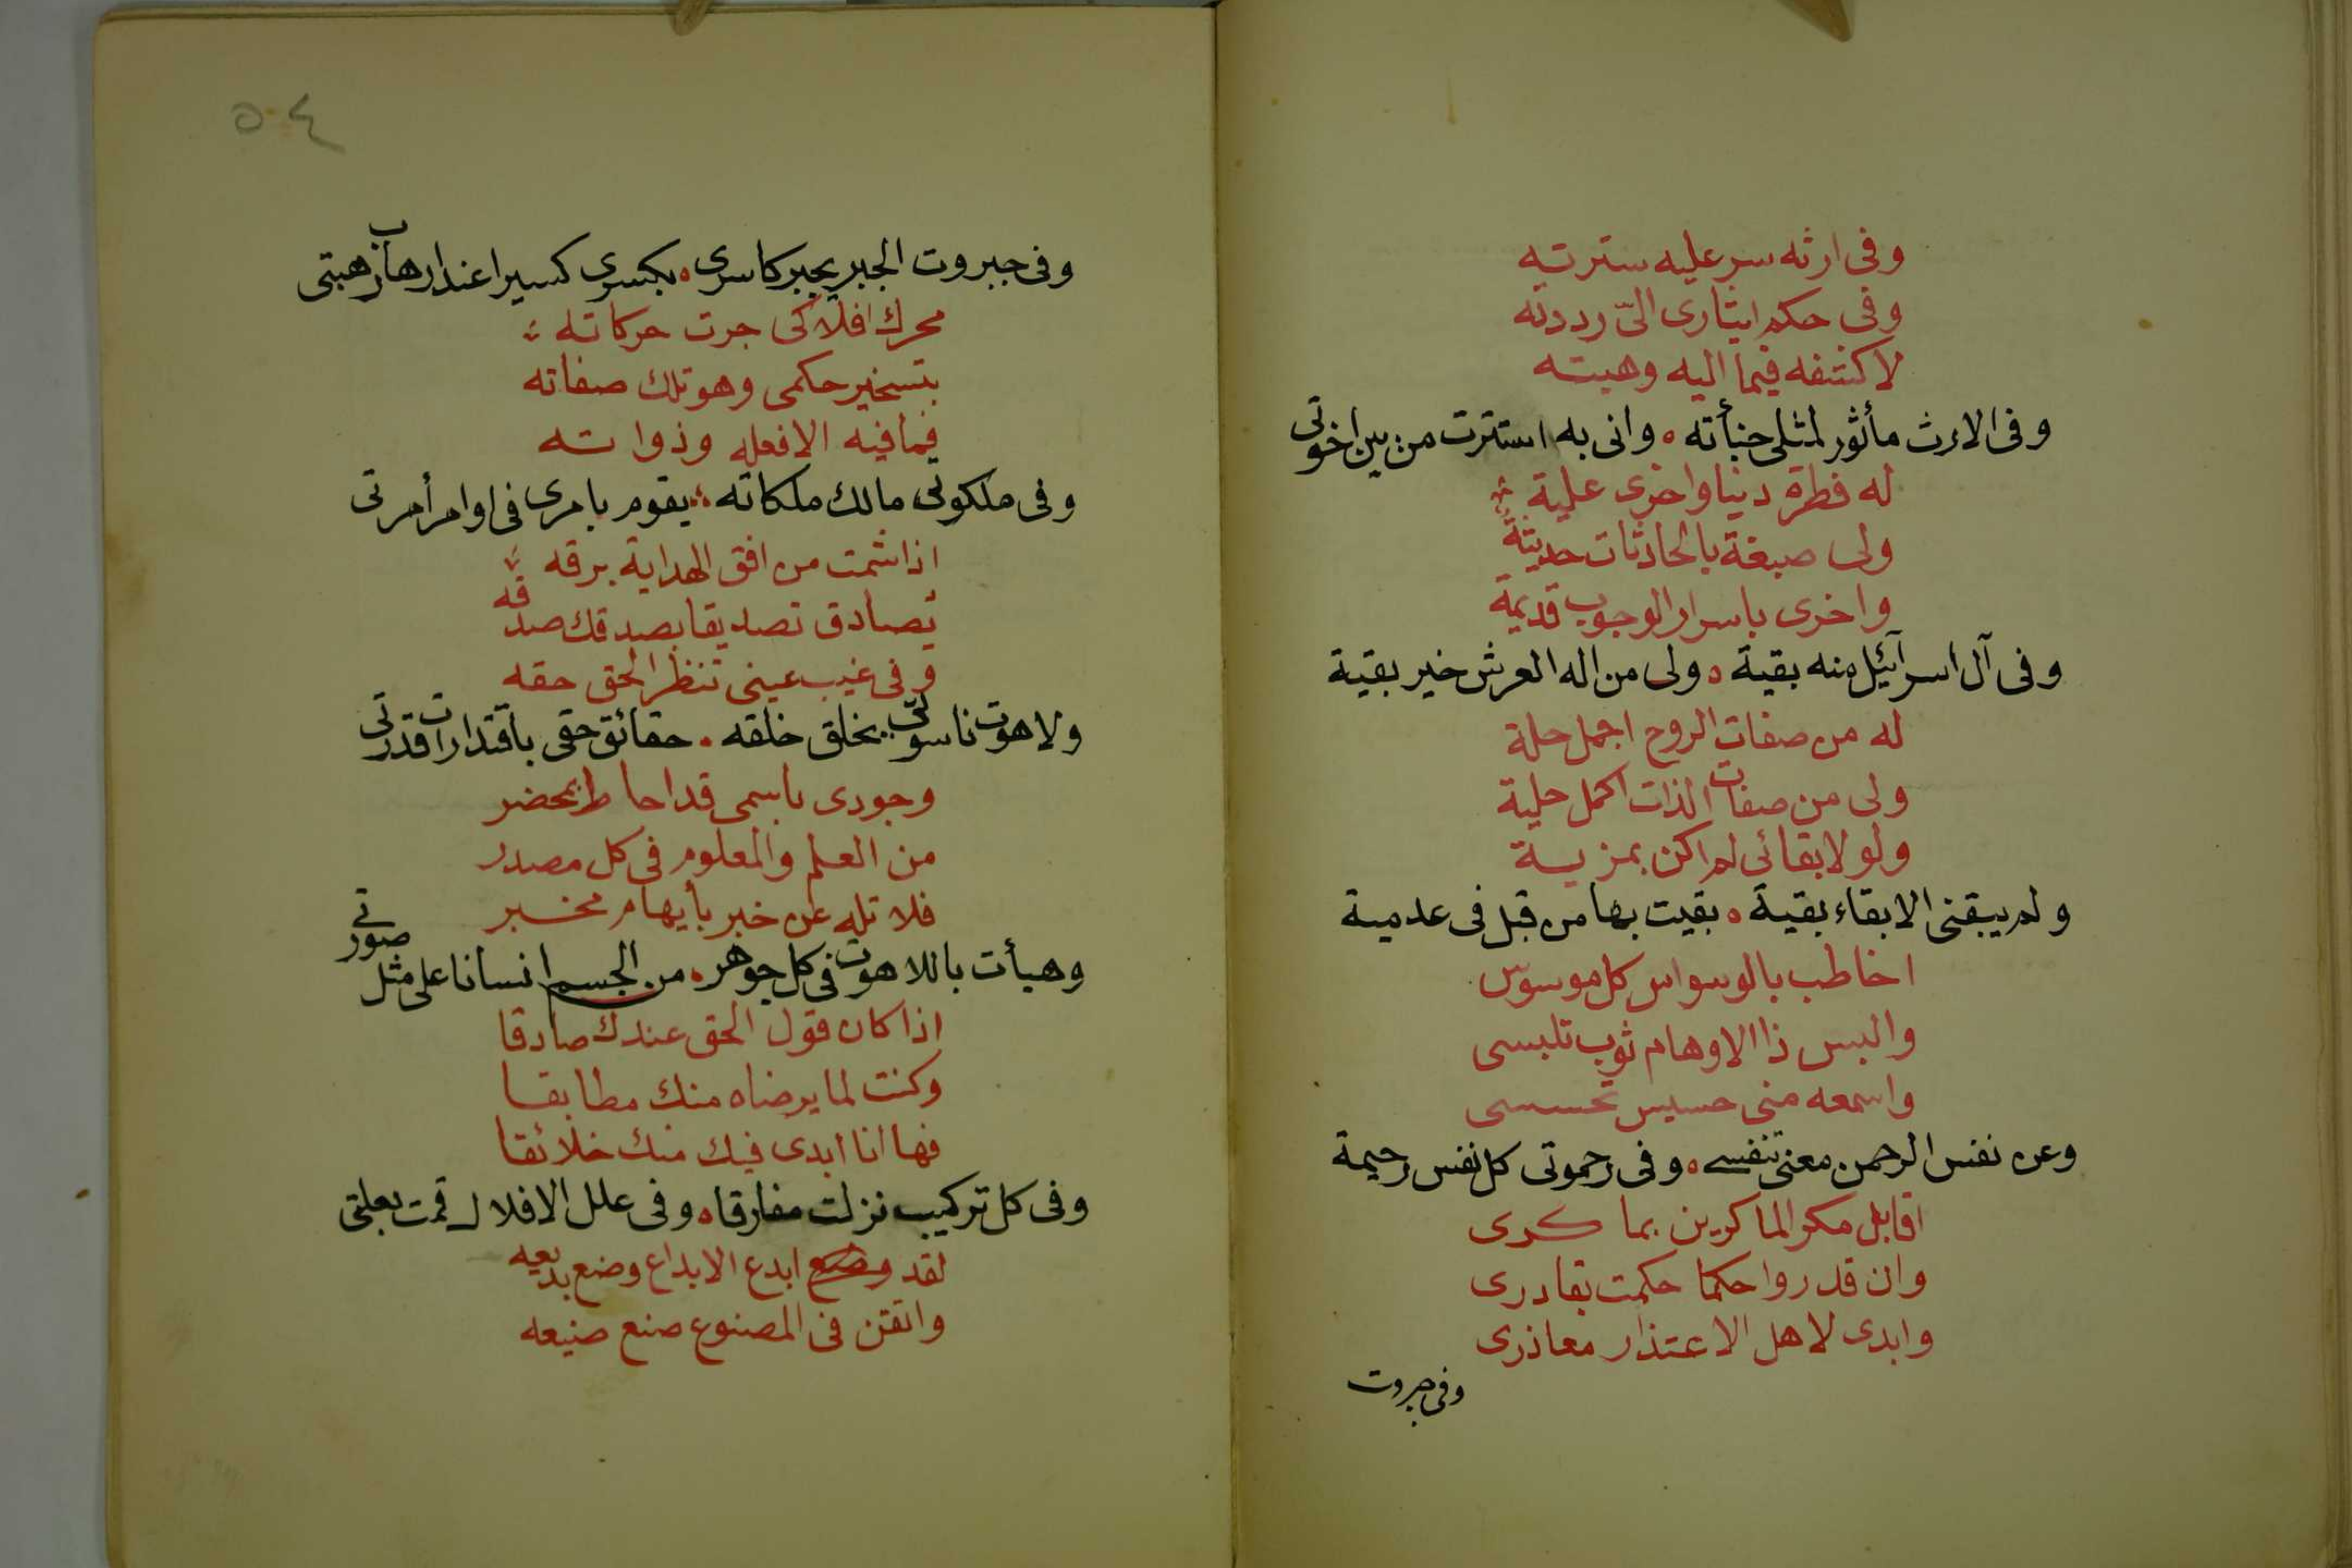 وفى ارثه سر عليه سترته
وفى حكم ايثارى الىّ رددته
لاكشفه فيما اليه وهبته
وفى الارث مأثور لمثلى خبأته ۰ وانى به استترت من بين اخوتى
له فطرة دنيا واخرى علية
ولى صبغة بالحادثات حديثة
واخرى باسرار الوجوب قديمة
وفى آل اسرآئيل منه بقية ۰ ولى من اله العرش خير بقية
له من صفات الروح اجمل حلة
ولى من صفات الذات اكمل حلية
ولولا بقائى لم اكن بمزية
ولم يبقنى الا بقاء بقية ۰ بقيت بها من قبل فى عدمية
اخاطب بالوسواس كل موسوس
والبس ذا الاوهام ثوب تلبسى
واسمعه منى حسيس تحسسى
وعن نفس الرحمن معنى تنفسى ۰ وفى رحموتى كل نفس رحيمة
اقابل مكر الماكرين بما كرى
وان قدروا حكما حكمت بقادرى
وابدى لاهل الاعتذار معاذرى
وفى جبروت
٥٤
وفى جبروت الجبر يجبر كاسرى ۰ بكسرى كسيرا عند ارهاب رهبتى
محرك افلاكى جرت حركاته
بتسخير حكمى وهو تلك صفاته
فما فيه الا فعله وذواته
وفى ملكوتى مالك ملكاته ؛ يقوم بامرى فى اوامر أمرتى
اذا شمت من افق الهداية برقه
تصادق تصديقا بصدقك صدقه
وفى غيب عينى تنظر الحق حقه
ولاهوت ناسوتى بخلق خلقه ۰ حقائق حقى باقتدارات قدرتى
وجودى باسمى قد احاط بمحضر
من العلم والمعلوم فى كل مصدر
فلا تله عن خبر بأيهام مخبر
وهيأت باللاهوت فى كل جوهر ۰ من الجسم انسانا على مثل صورتى
اذا كان قول الحق عندك صادقا
وكنت لما يرضاه منك مطابقا
فها انا ابدى فيك منك خلائقا
وفى كل تركيب نزلت مفارقا ۰ وفى علل الافلاك قمت بعلتى
لقد ابدع الابداع وضع بديعه
واتقن فى المصنوع صنع صنيعه